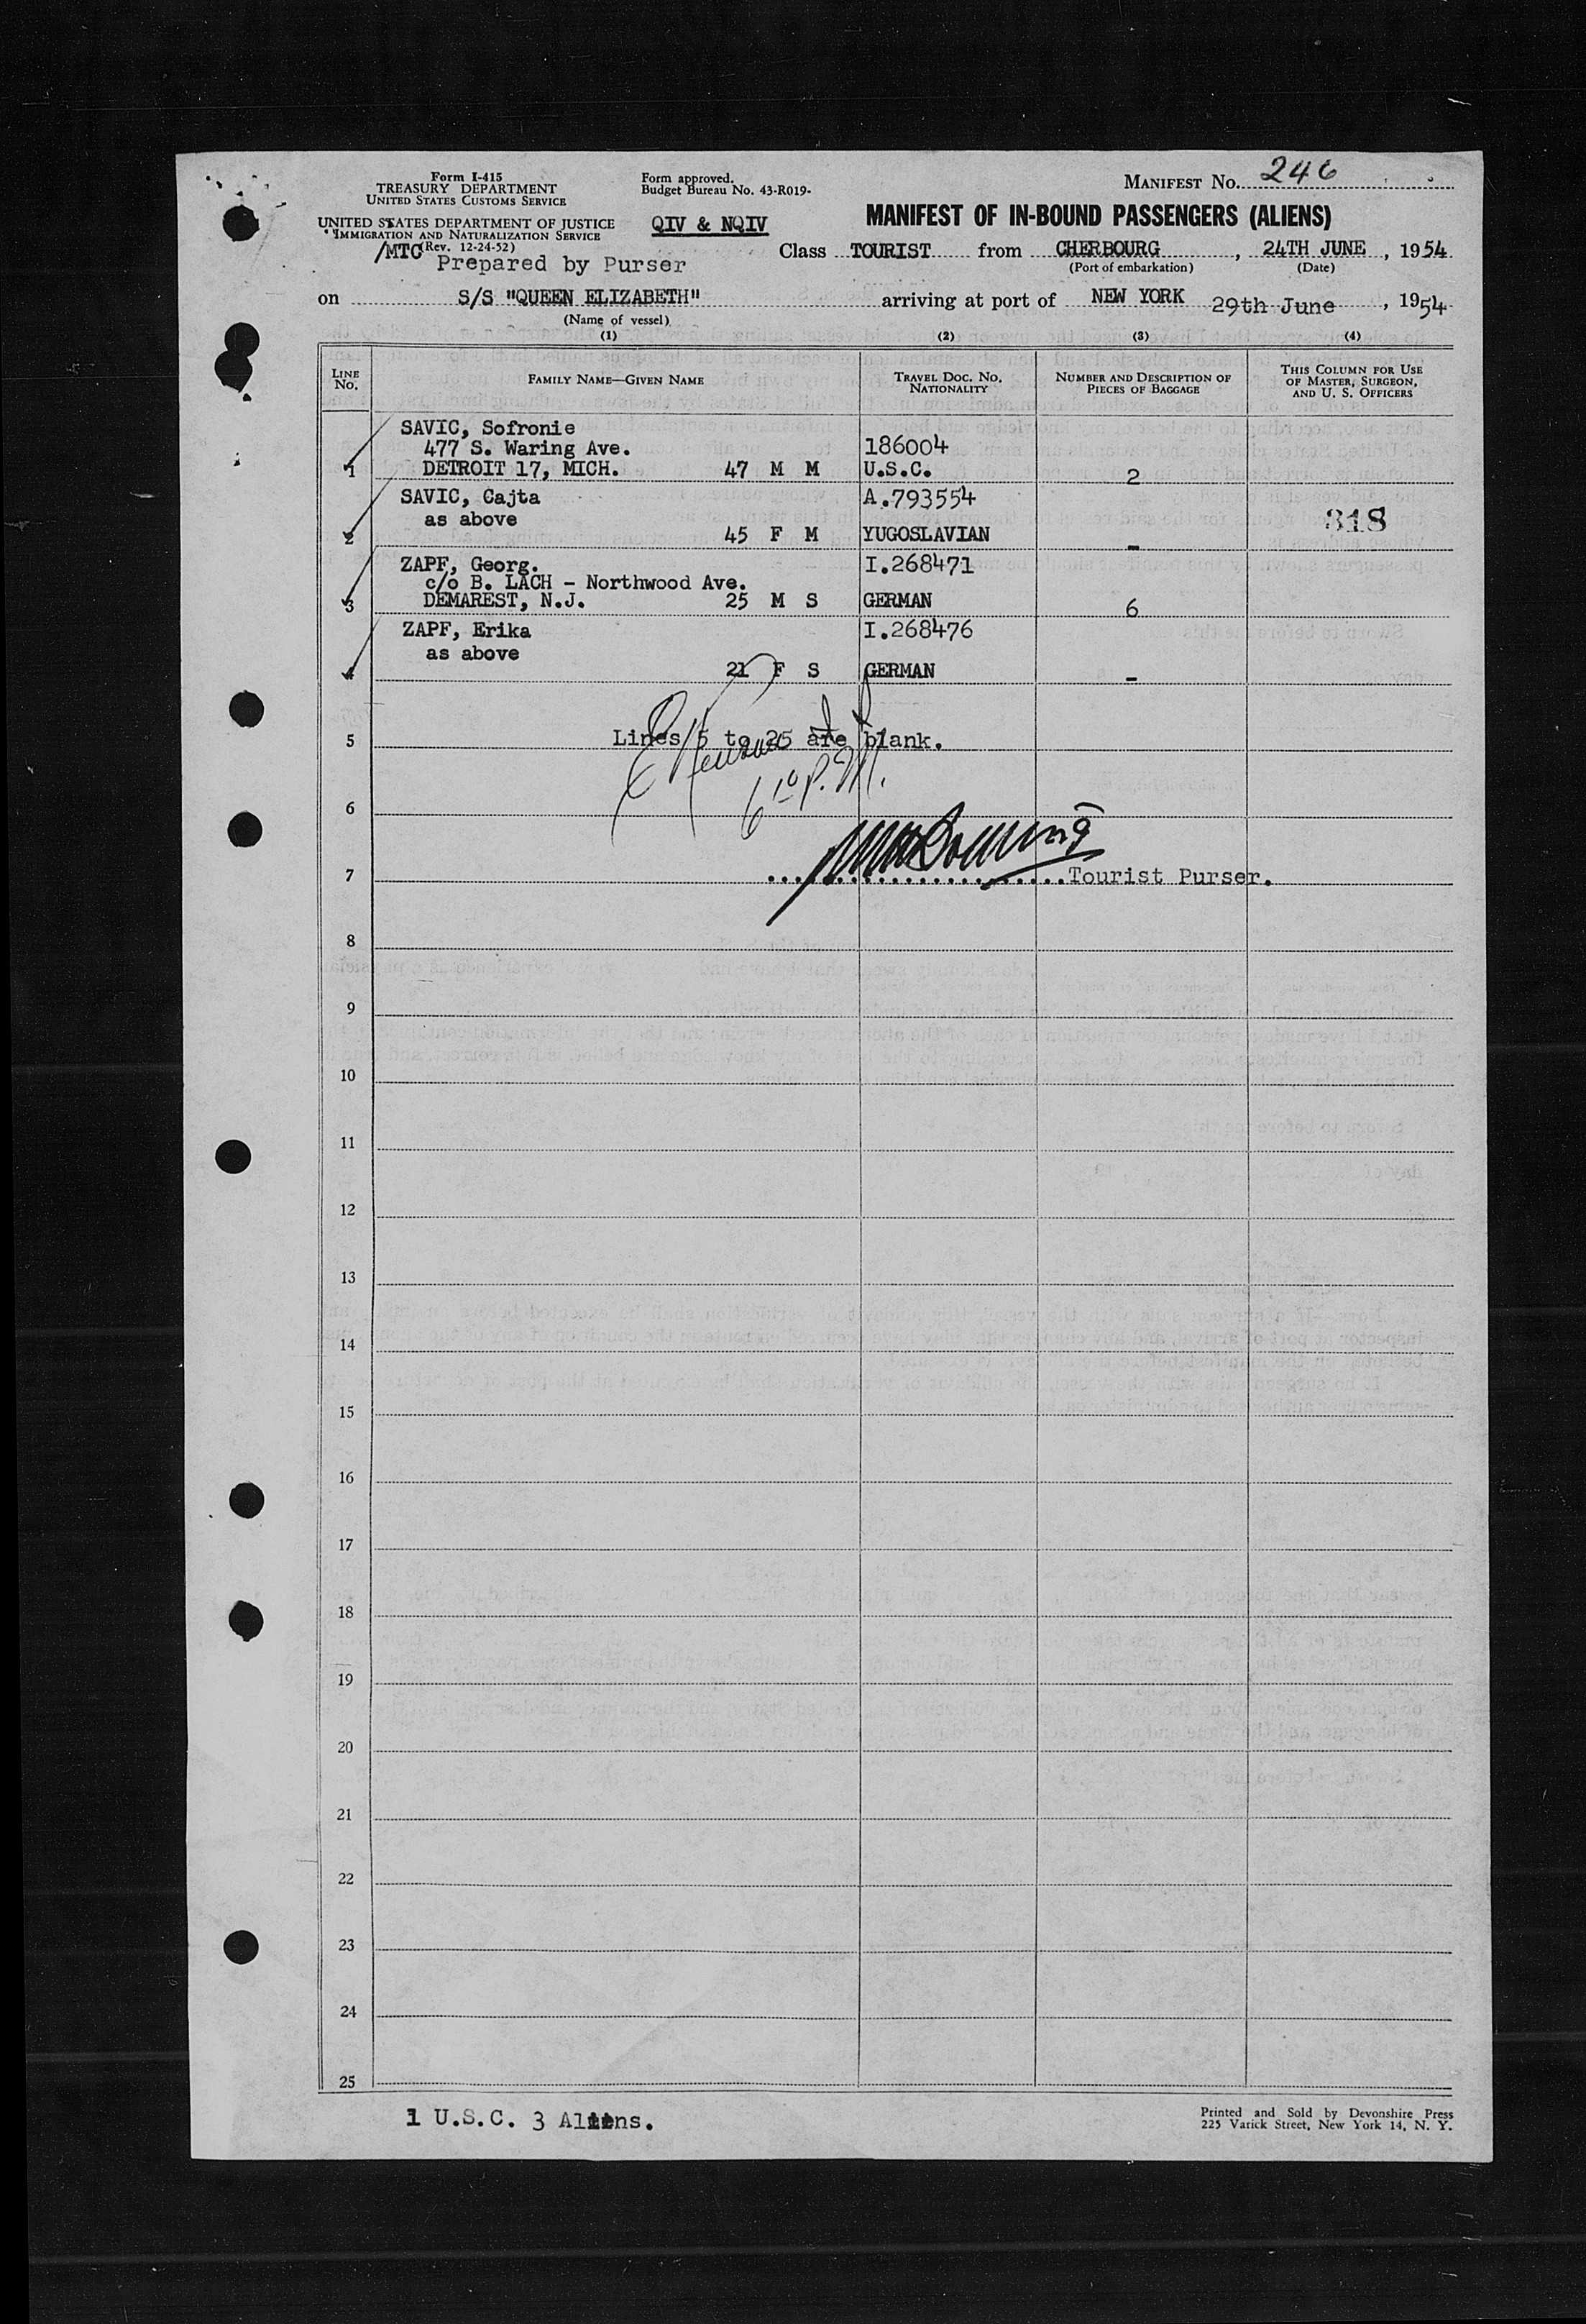 Form I-415
TREASURY DEPARTMENT
UNITED STATES CUSTOMS SERVICE
UNITED STATES DEPARTMENT OF JUSTICE
IMMIGRATION AND NATURALIZATION SERVICE
/MTC (Rev. 12-24-52)
Prepared by Purser
Form approved.
Budget Bureau No. 43-R019-
QIV & NQIV
MANIFEST No. 246
MANIFEST OF IN-BOUND PASSENGERS (ALIENS)
Class TOURIST from CHERBOURG, 24TH JUNE, 1954
(Port of embarkation) (Date)
on S/S "QUEEN ELIZABETH" arriving at port of NEW YORK 29th June, 1954
(Name of vessel)
(1) (2) (3) (4)
LINE No. FAMILY NAME—GIVEN NAME TRAVEL DOC. NO. NATIONALITY NUMBER AND DESCRIPTION OF PIECES OF BAGGAGE THIS COLUMN FOR USE OF MASTER, SURGEON, AND U. S. OFFICERS
SAVIC, Sofronie
477 S. Waring Ave. 186004
1 DETROIT 17, MICH. 47 M M U.S.C. 2
SAVIC, Cajta A.793554
as above 318
2 45 F M YUGOSLAVIAN -
ZAPF, Georg. I.268471
c/o B. LACH - Northwood Ave.
3 DEMAREST, N.J. 25 M S GERMAN 6
ZAPF, Erika I.268476
as above
4 21 F S GERMAN -
5 Lines 5 to 25 are blank.
6
7 Tourist Purser.
8
9
10
11
12
13
14
15
16
17
18
19
20
21
22
23
24
25
1 U.S.C. 3 Aliens.
Printed and Sold by Devonshire Press
225 Varick Street, New York 14, N. Y.